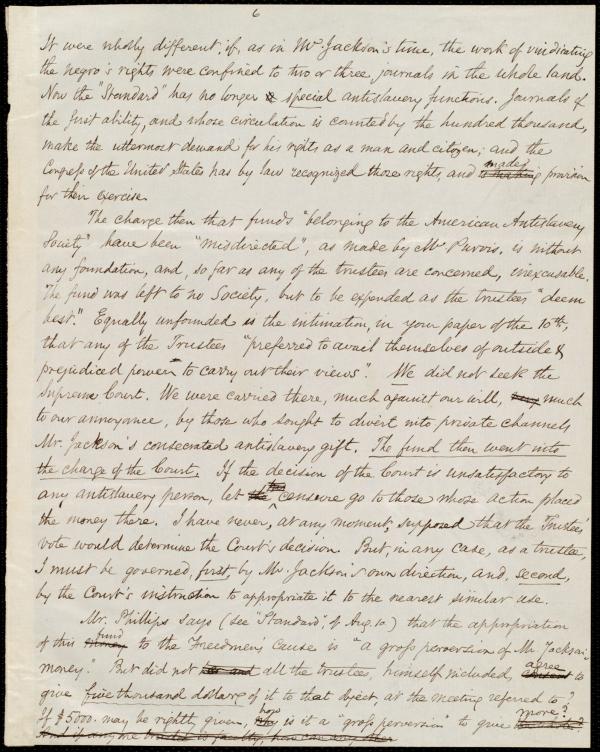 6
It were wholly different, if, as in Mr. Jackson's time, the work of vindicating
the negro's rights were confined to two or three journals in the whole land.
Now the "Standard" has no longer special antislavery functions. Journals of
the first ability, and whose circulation is counted by the hundred thousand,
make the uttermost demand for his rights as a man and citizen; and the
Congress of the United States has by law recognized those rights, and made
is making provision
for their exercise.
The charge then that funds "belonging to the American Antislavery
Society" have been "misdirected", as made by Mr Purvis, is without
any foundation, and, so far as any of the trustees are concerned, inexcusable.
The fund was left to no Society, but to be expended as the trustees "deem
best." Equally unfounded is the intimation, in your paper of the 10th,
that any of the Trustees "preferred to avail themselves of outside &
prejudiced power to carry out their views". We did not seek the
Supreme Court. We were carried there, much against our will, much
to our annoyance, by those who sought to divert into private channels
Mr. Jackson's consecrated antislavery gift. The fund then went into
the charge of the Court. If the decision of the Court is unsatisfactory to
any antislavery person, let the censure go to those whose action placed
the money there. I have never, at any moment, supposed that the Trustees'
vote would determine the Court's decision. But, in any case, as a trustee,
I must be governed, first, by Mr. Jackson's own direction, and, second,
by the Court's instruction to appropriate it to the nearest similar use.
Mr. Phillips says (see "Standard", of Aug. 10) that the appropriation
of this money fund to the Freedmen's cause is "a gross perversion of Mr Jackson's
money." But did not all the trustees, himself included, agree
consent to
give five thousand dollars of it to that object, at the meeting referred to?
If $5000. may be rightly given, how is it a "gross perversion" to give more?